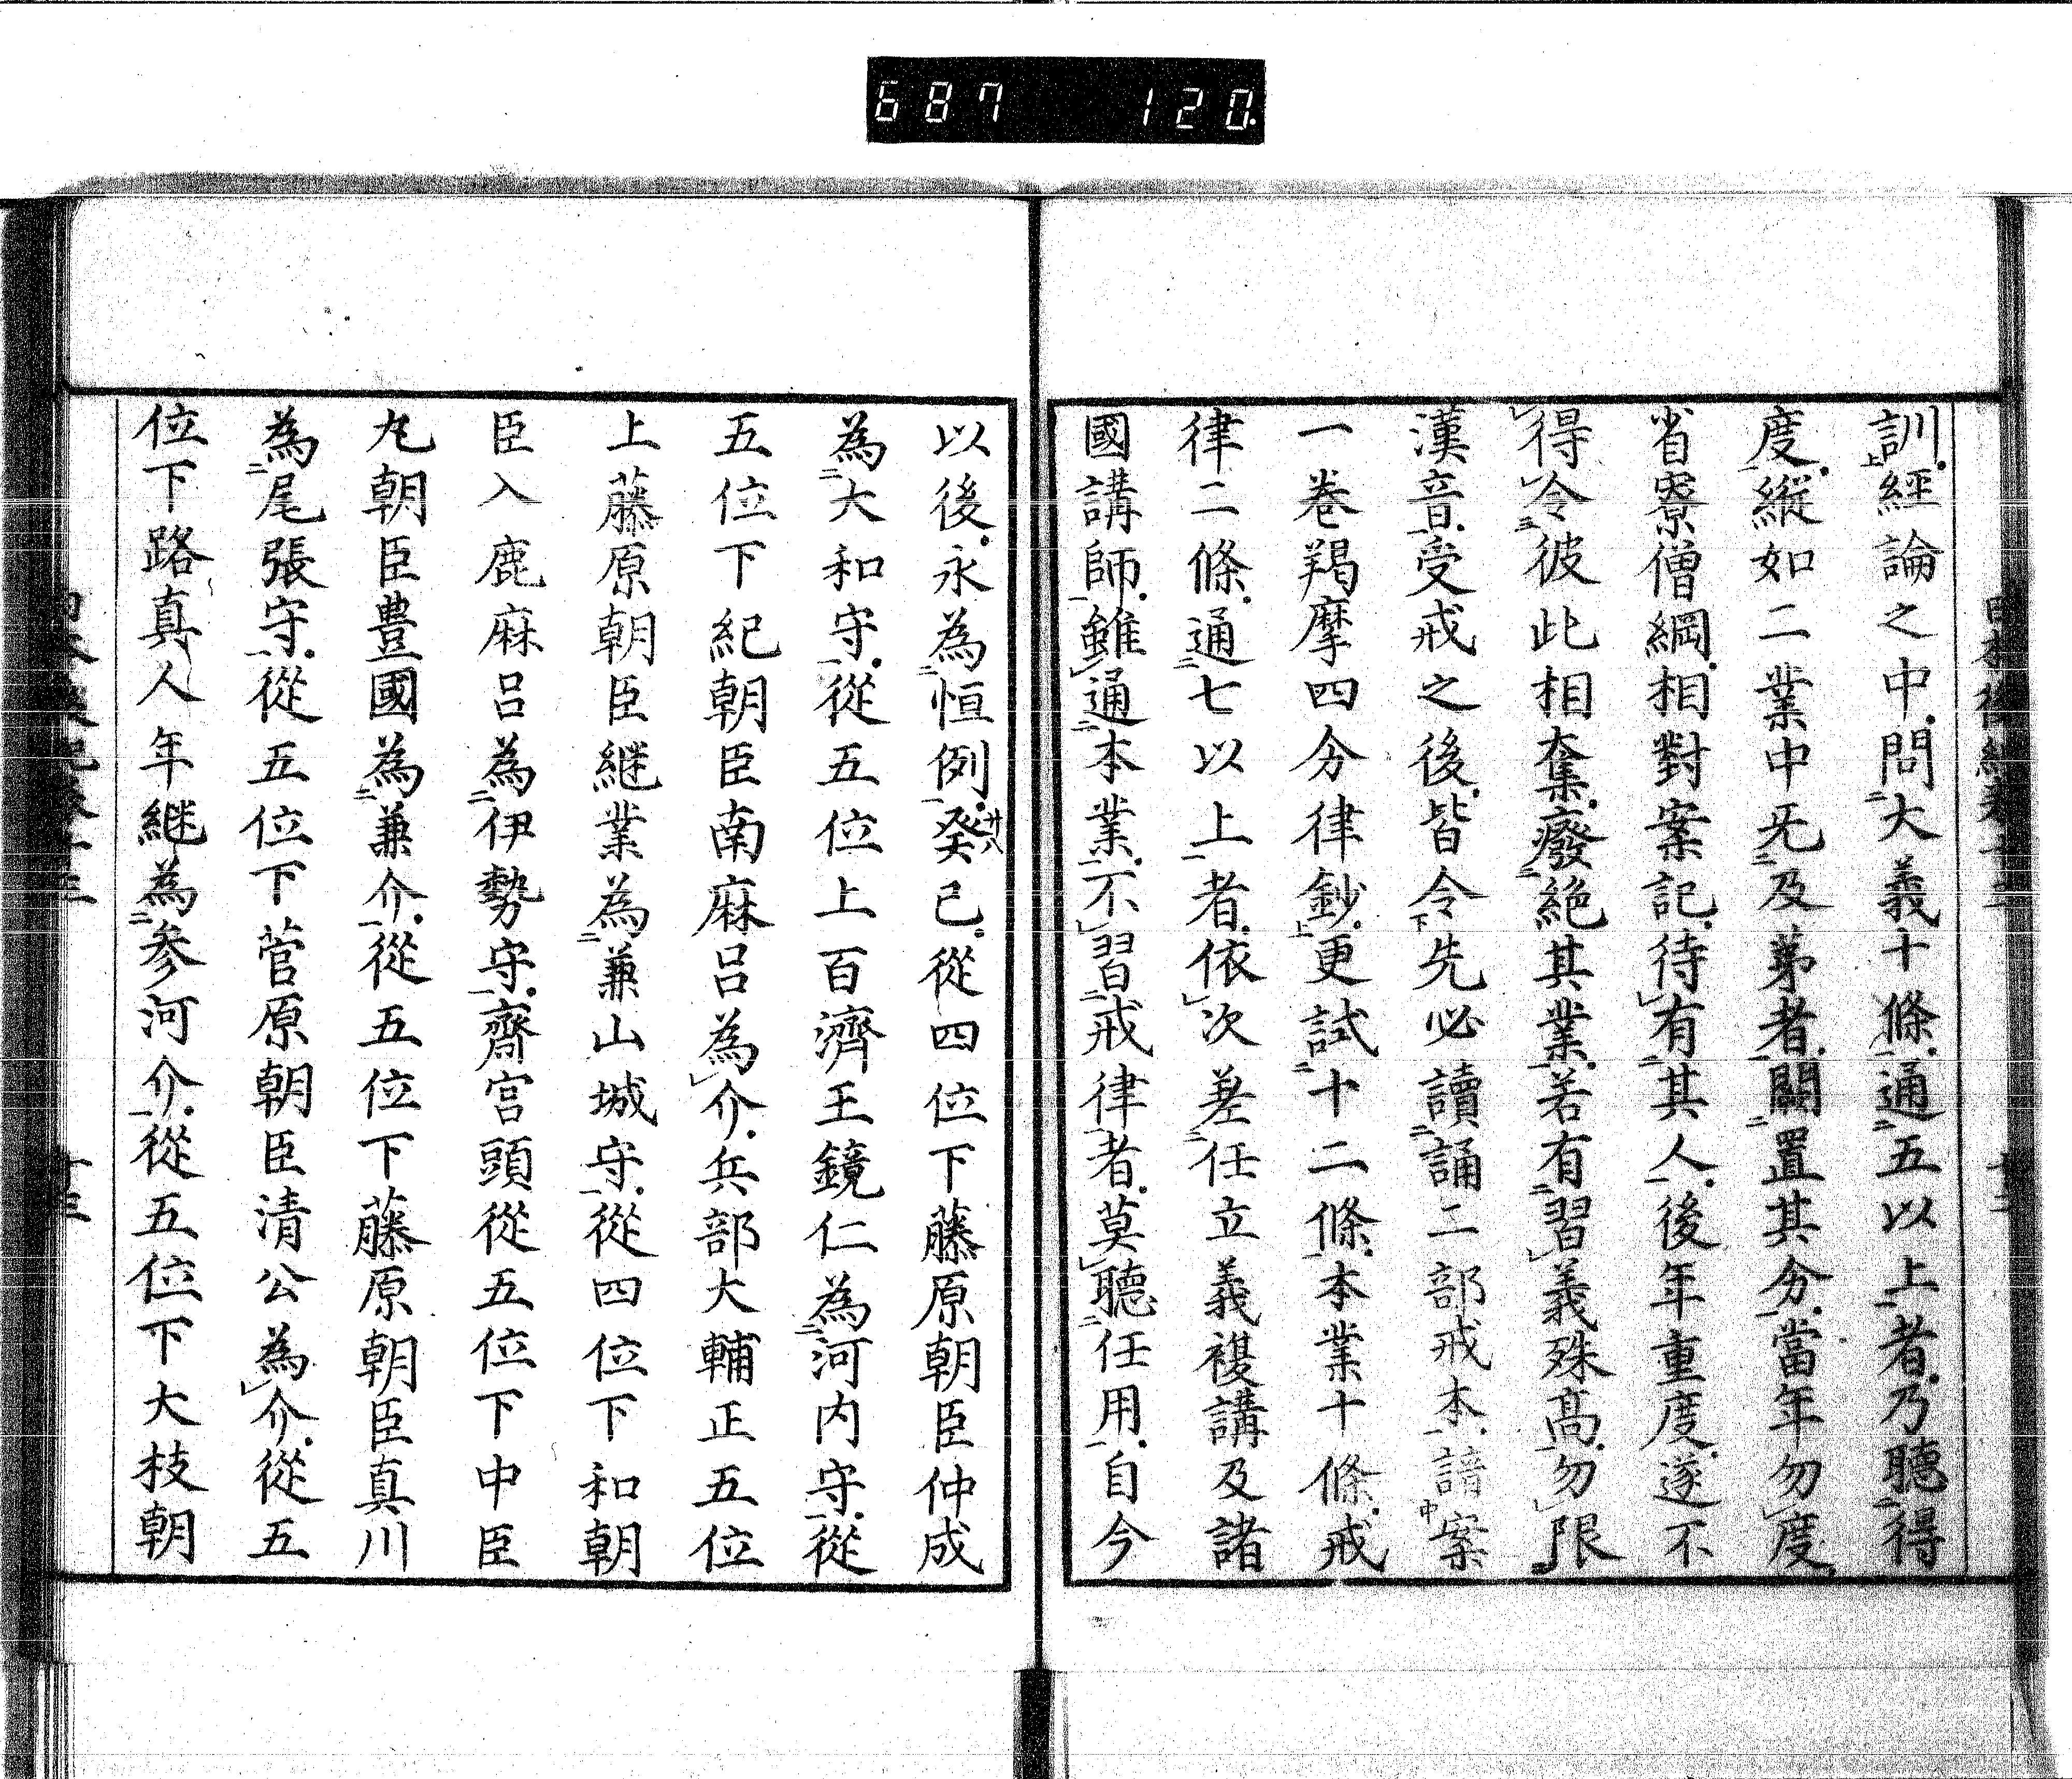 687 120
訓經論之中問大義十條通五以上者乃聽得
度縦如二業中无及第者闕置其分當年勿度
省寮僧綱相對案記待有其人後年重度遂不
得令彼此相奪廢絶其業若有習義殊高勿限
漢音受戒之後皆令先必讀誦二部戒本諳案
一卷羯摩四分律鈔更試十二條本業十條戒
律二條通七以上者依次差任立義複講及諸
國講師雖通本業不習戒律者莫聽任用自今
以後永為恒例癸巳從四位下藤原朝臣仲成
廿八
為大和守從五位上百濟王鏡仁為河内守從
五位下紀朝臣南麻呂為介兵部大輔正五位
上藤原朝臣継業為兼山城守從四位下和朝
臣入鹿麻呂為伊勢守齋宮頭從五位下中臣
丸朝臣豊國為兼介從五位下藤原朝臣真川
為尾張守從五位下菅原朝臣清公為介從五
位下路真人年継為参河介從五位下大枝朝